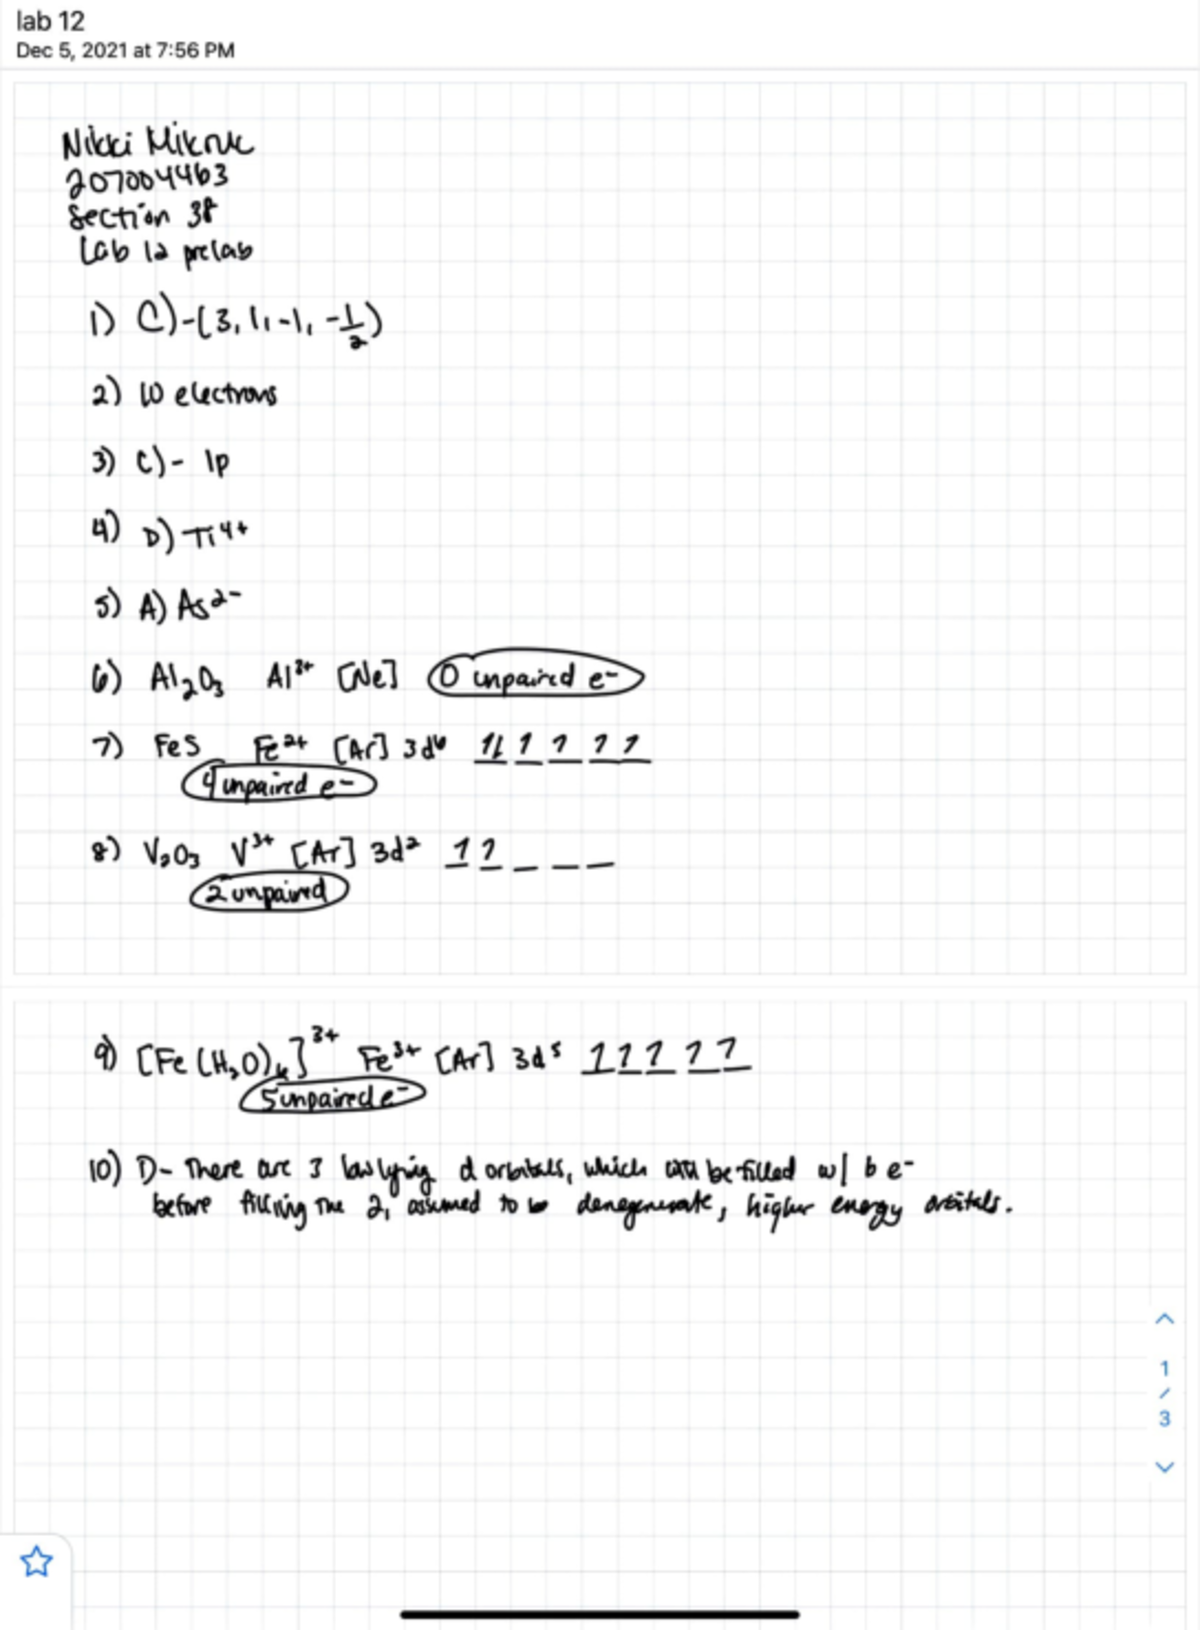 lab 12
Dec 5, 2021 at 7:56 PM
Nikki Mikruk
207004463
Section 38
Lab 12 prelab
1) C)-(3, 1, -1, -1/2)
2) 10 electrons
3) C) - 1p
4) D) Ti⁴⁺
5) A) As²⁻
6) Al₂O₃ Al³⁺ [Ne] 0 unpaired e⁻
7) FeS Fe²⁺ [Ar] 3d⁶ 1⇂ 1 1 1 1
4 unpaired e⁻
8) V₂O₃ V³⁺ [Ar] 3d² 1 1 _ _ _
2 unpaired
9) [Fe(H₂O)₆]³⁺ Fe³⁺ [Ar] 3d⁵ 1 1 1 1 1
5 unpaired e⁻
10) D- There are 3 low lying d orbitals, which will be filled w/ 6 e⁻
before filling the 2, assumed to be denegenerate, higher energy orbitals.
1
/
3